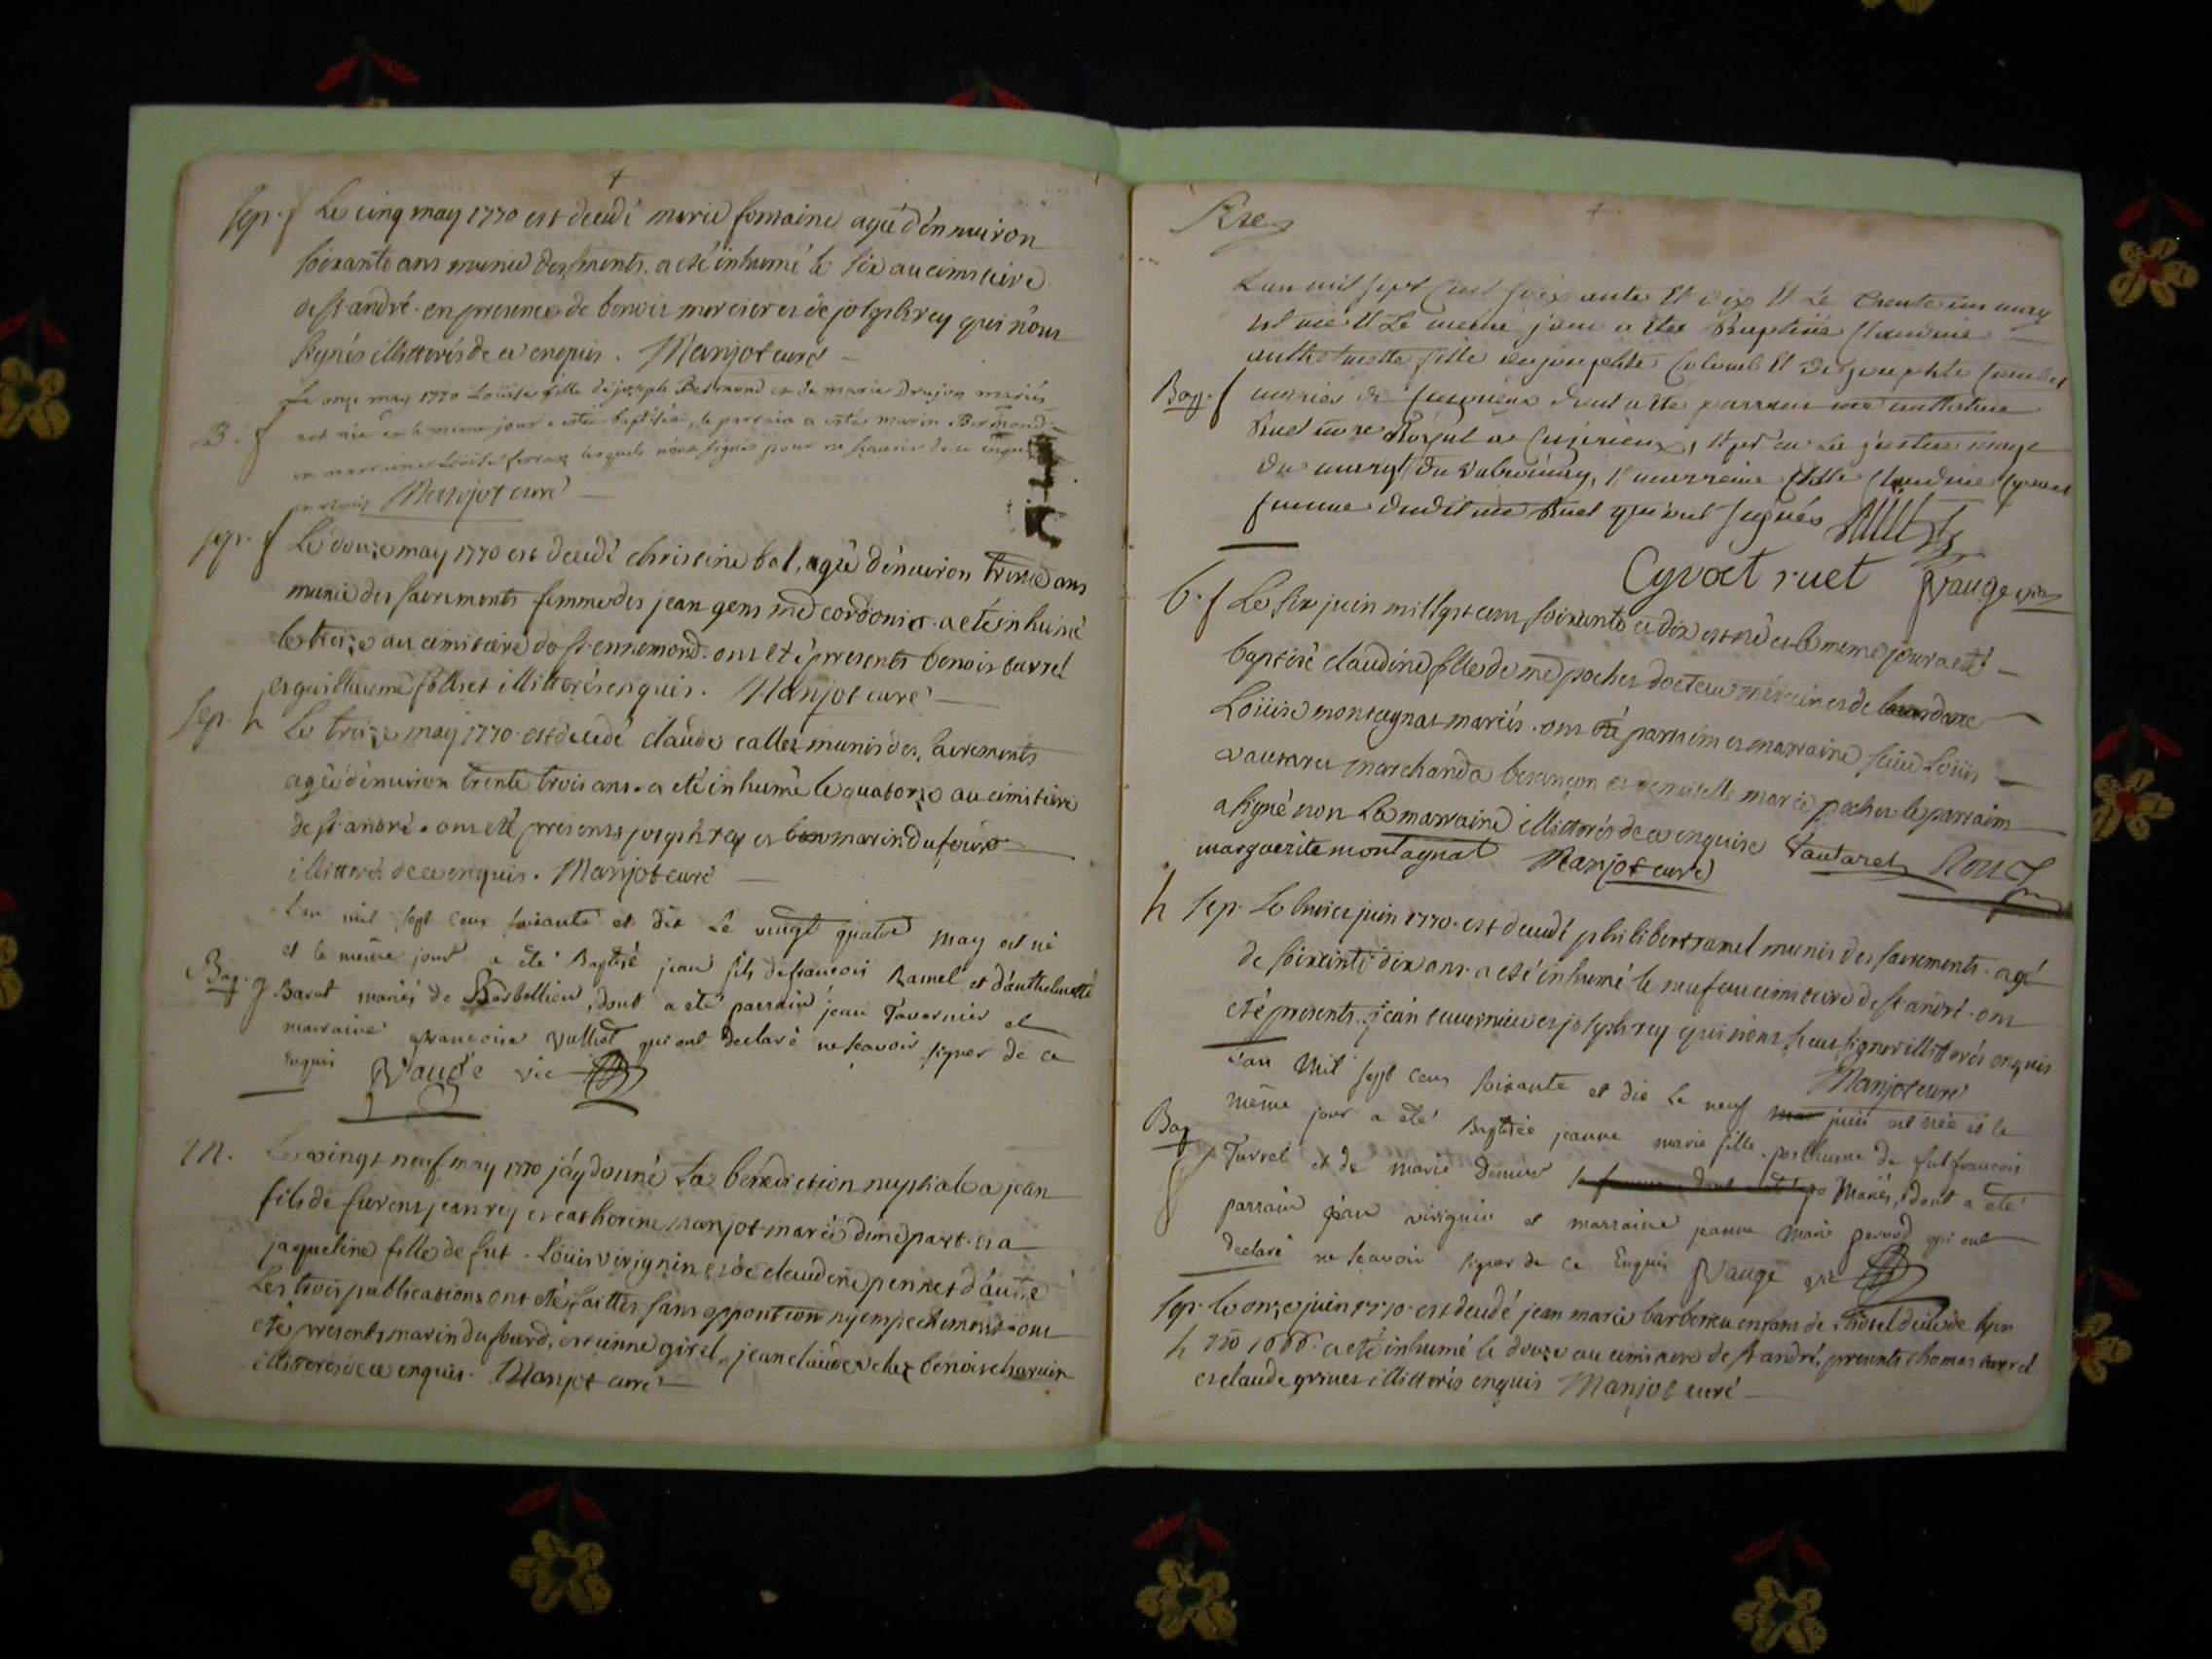 4
Sep. f Le cinq may 1770 est decedé marie fontaine agée d'énnuiron
soixante ans munie des sments. a eté inhumé le six au cimitiere
de st. andré. en presence de benoit mercier et de joseph rey qui n'ont
signés illitterés de ce enquis. Manjot curé
Le onze may 1770 Loüise fille de joseph Bertmond et de marie Drujon mariés
B. f est née et le meme jour a estée baptisée, le parrain a esté marin Bermond
et marraine Loüise lesquels n'ont signés pour ne sçauoir de ce enquis
Manjot curé
sep. f Le douze may 1770 est decedé christine bal, agée dénuiron trente ans
munie des sacrements femme de jean gens md cordonier a eté inhumé
le treize au cimitiere de st. ennemond. ont eté presents benoit turrel
et guillaume follret illitterés enquis. Manjot curé
Sep. h Le treize may 1770 est decedé claude callet munis des sacrements
agée dénuiron trente trois ans. a eté inhumé le quatorze au cimitiere
de st. andré. ont eté presents joseph rey et marin dufour
illitterés de ce enquis. Manjot curé
L'an mil sept cens soixante et dix Le vingt quatre may est né
et le même jour a été Baptisé jean fils de francois Ramel et d'anthelmette
Bap. g. Barat mariés de Barbollieu, dont a été parrain jean Tavernier et
marraine francoise Vulliot qui ont declaré ne scavoir signer de ce
Enquis Vauge vic
M. Le vingt neuf may 1770 j'áy donné La bénédiction nuptiale a jean
fils de furent jean rey et catherine manjot mariés d'une part. et a
jaqueline fille de fut. Loüis virignin et de claudine pennet d'autre
Les trois publications ont eté faittes sans oppontion ny empechement ont
eté presents marin dufourd, etienne girel, jean claude velle benoit charuin
illitterés de ce enquis. Manjot curé
4
L'an mil sept cent soixante Et dix Et Le trente un may
Est née Et Le meme jour a Etée Baptisée Claudine
anthelmette fille de josephte Colomb Et de josephte
Bap. f mariés de Cusirieux dont a Ete parrain me anthelme
Ruet nore Royal a Cusirieux, Et
du marqt du Valromey, Et marreine Claudine Cyvoct
femme dudit me Ruet qui ont signés
Cyvoct ruet Vauge vic
b. f Le six juin mil sept cens soixante et dix est né et le meme jour a eté
baptisé claudine fille de me pochet docteur médecin et de
Loüise montagnat mariés. ont eté parrain et marraine sieur Loüis
vautaret marchand a besançon et demoiselle marie pochet le parrain
a signé non La marraine illitterés de ce enquise Vautaret
marguerite montagnat Manjot curé
h Sep. Le huit juin 1770. est decedé philibert ramel munis des sacrements. agé
de soixante dix ans. a eté inhumé le neuf au cimitiere de st. andré. ont
eté presents. jean tauernier et joseph rey qui n'ont sceut signer illitterés enquis
Manjot curé
L'an Mil sept cens soixante et dix Le neuf juin est née et le
même jour a eté Baptisée jeanne marie fille posthume de fut francois
Bap f Turrel et de marie Mariés, dont a été
parrain jean virignin et marraine jeanne Marie pernod qui ont
declaré ne scavoir signer de ce Enquis Vauge vic
Sep. Le onze juin 1770. est decedé jean marie barberieu enfant de de lyon
h no 1066. a eté inhumé le douze au cimitiere de st. andré, presents thomas turrel
et claude griuet illitterés enquis Manjot curé